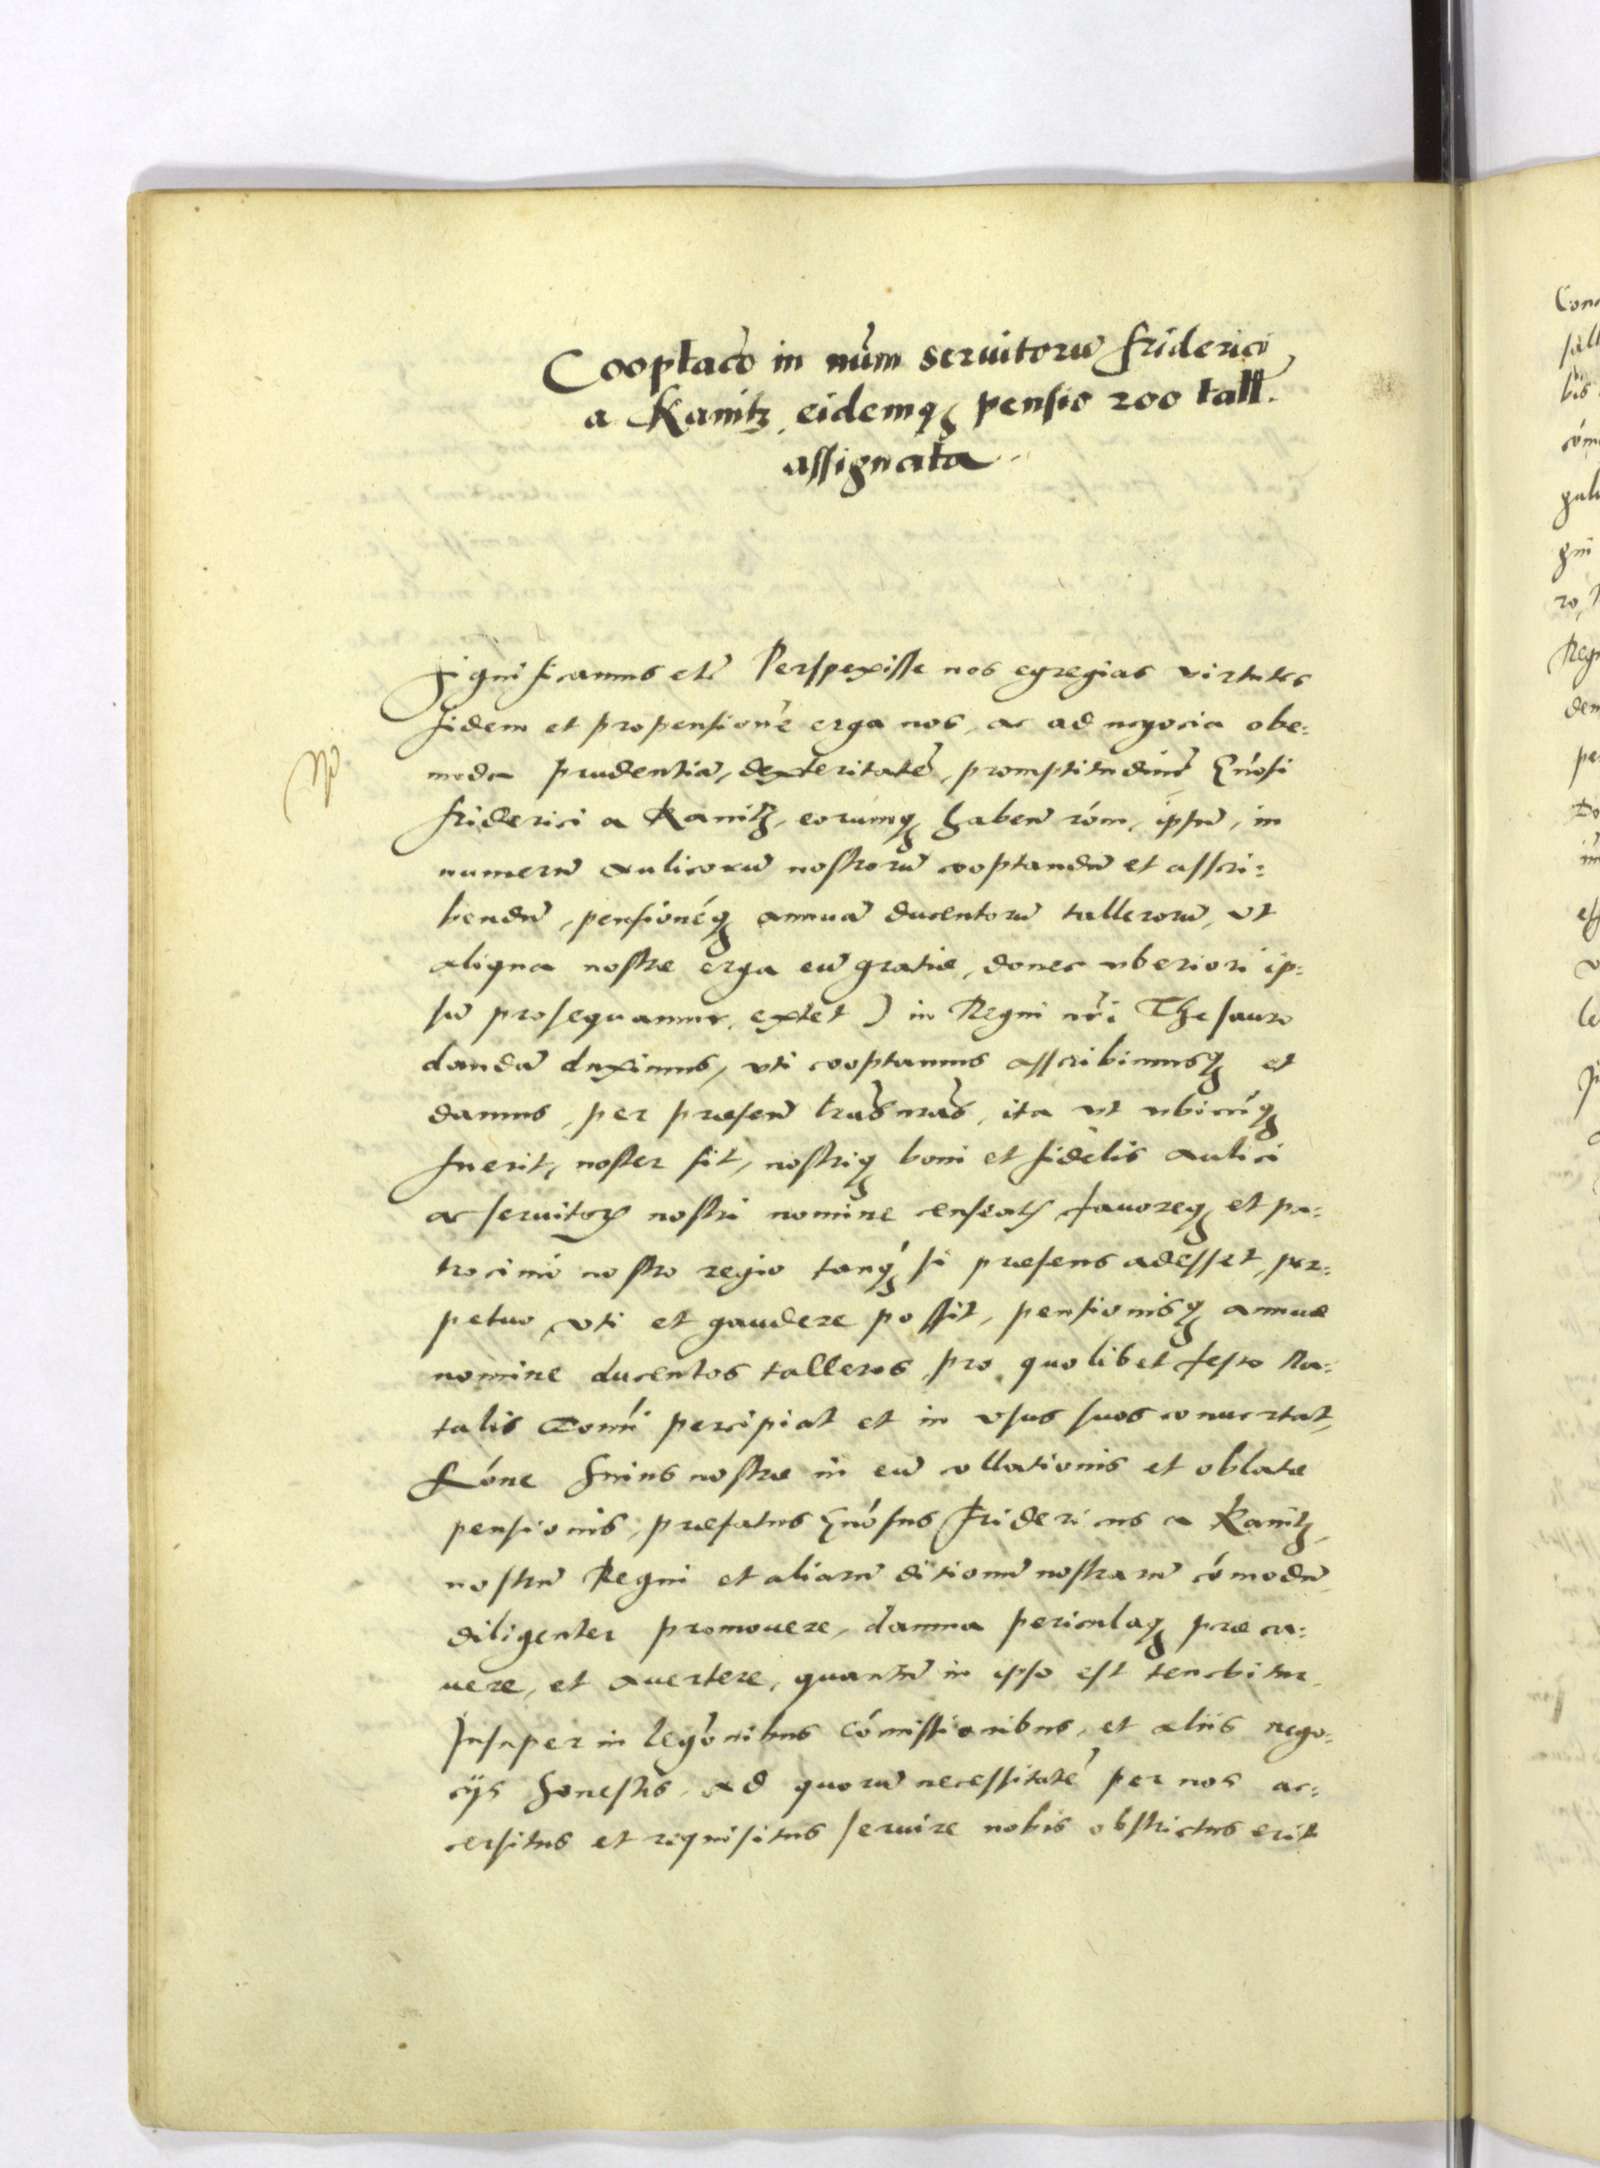 Cooptaco in nūm seruitorū friderici
a Kanitz eidemq₃ pensio 200 tall.
assignata
Significamus etc̄ Perspexisse nos egregias virtutes
fidem et propensionē erga nos, ac ad negocia obe=
unda prudentiā, dexteritatē, promptitudinē Gn̄osi
friderici a Kanitz, eorumq₃ haben̄ rōm, ipsū, in
numerū aulicorū nostrorū cooptandū et asscri=
bendū, pensionēq₃ annuā ducentorū tallerorū, vt
aliqua nostræ erga eū gratiæ, donec vberiori ip=
sū prosequamur, extet) in Regni nr̄i Thesauro
dandā duximus, vti cooptamus asscribimusq₃ et
damus, per præsen̄ lrās nrās, ita vt vbicūq₃
fuerit, noster sit, nostriq₃ boni et fidelis aulici
ac seruitoris nostri nomine censeatr̄ fauoreq₃ et pa=
trocinio nostro regio tanq₃ si præsens adesset, per=
petuo vti et gaudere possit, pensionisq₃ annuæ
nomine ducentos talleros pro quolibet festo Na=
talis Domī percipiat et in vsus suos conuertat,
Rōne huius nostræ in eū collationis et oblatæ
pensionis, præfatus Gn̄osus Fridericus a Kanitz,
nostrū Regni et aliarū ditionū nostrarū cōmodū
diligenter promouere, damna periculaq₃ præca=
uere, et auertere, quantū in ipso est tenebitur.
Insuper in legōnibus cōmissionibus, et aliis nego=
cijs honestis, ad quorū necessitatē per nos ac=
cersitus et requisitus seruire nobis obstrictus erit